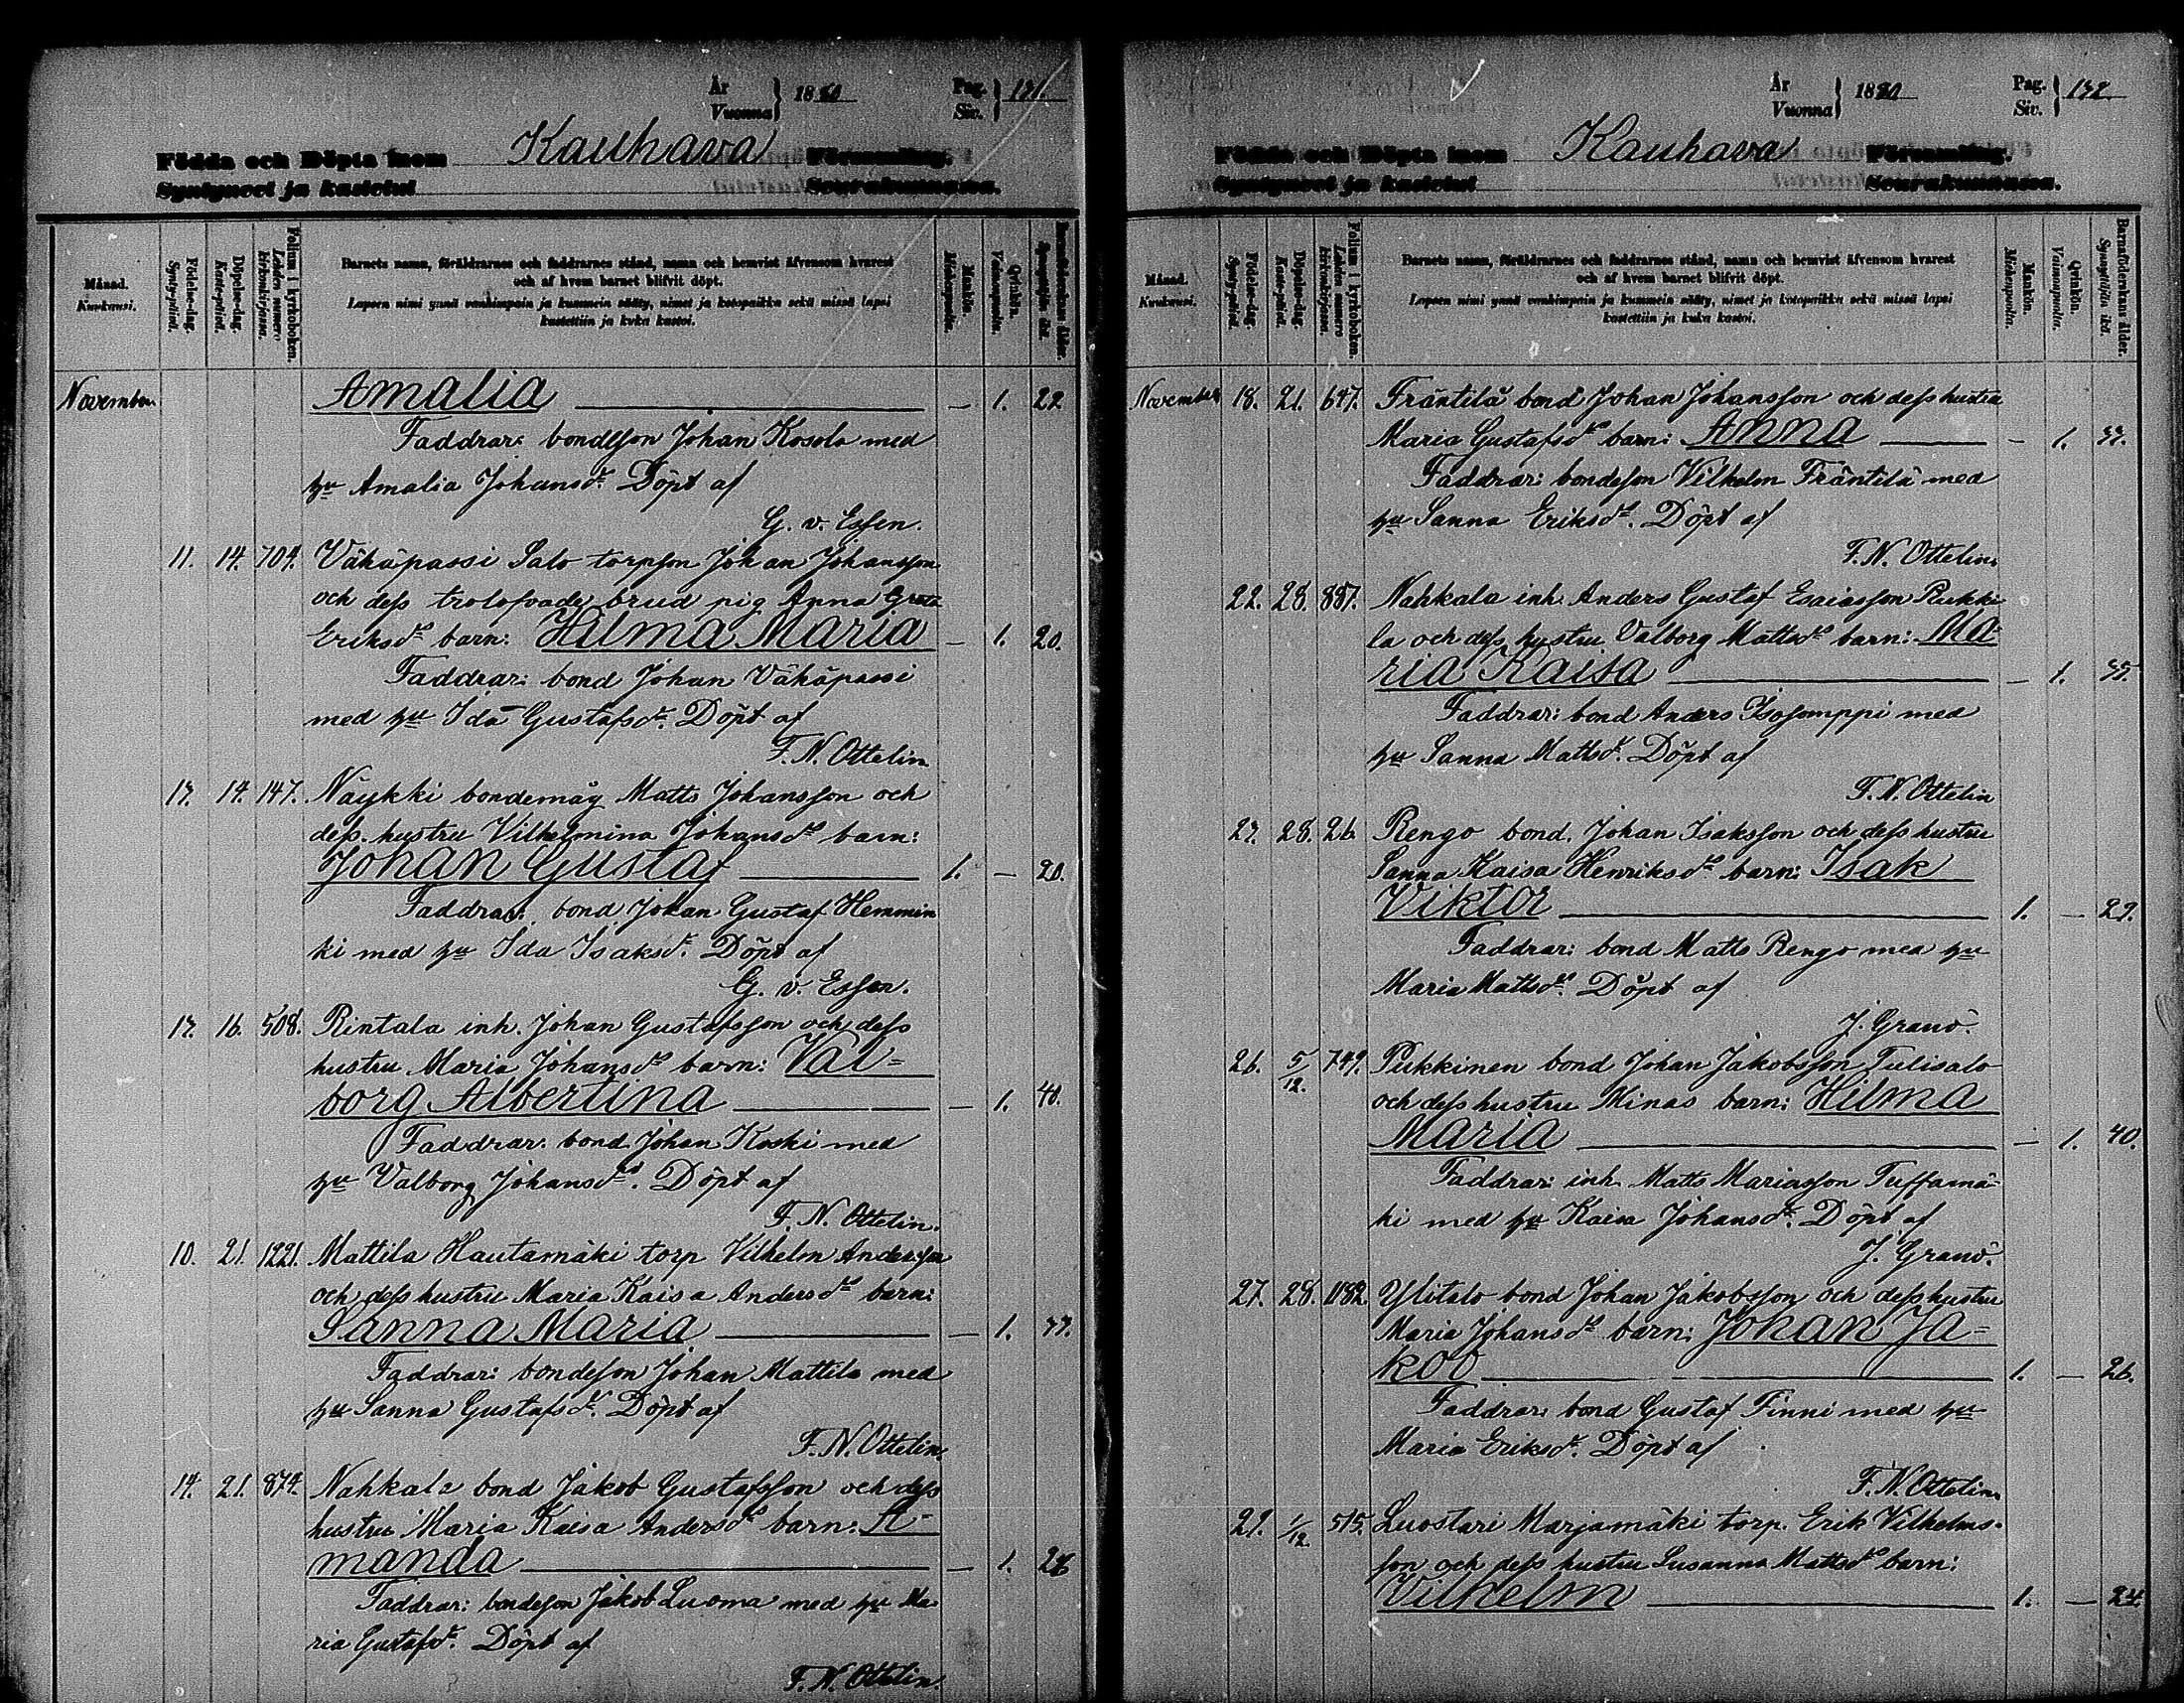 År
Vuonna } 1880
Pag.
Siv. } 131.
Födda och Döpta inom Kauhava Församling.
Syntyneet ja kastetut Seurakunnassa.
Månad.
Kuukausi.
Födelse-dag.
Synty-päivä.
Döpelse-dag.
Kaste-päivä.
Folium i kyrkoboken.
Lehden numero kirkonkirjassa.
Barnets namn, föräldrarnes och faddrarnes stånd, namn och hemvist äfvensom hvarest
och af hvem barnet blifvit döpt.
Lapsen nimi ynnä vanhimpain ja kummein sääty, nimet ja kotopaikka sekä missä lapsi
kastettiin ja kuka kastoi.
Mankön.
Miehenpuolia.
Qvinkön.
Vaimonpuolia.
Barnaföderskans ålder.
Synnyttäjän ikä.
November Amalia — 1. 22
Faddrar: bondeson Johan Kosola med
hu Amalia Johansdr. Döpt af
G. v. Essen.
11. 14. 704. Vähäpassi Salo torpson Johan Johansson
och dess trolofvade brud pig Anna Greta
Eriksdr barn: Hilma Maria — 1. 20.
Faddrar: bond Johan Vähäpassi
med hu Ida Gustafsdr. Döpt af
F. N. Ottelin
13. 14. 147. Näykki bondemåg Matts Johansson och
dess hustru Vilhelmina Johansdr barn:
Johan Gustaf 1. — 20.
Faddrar: bond Johan Gustaf Hemmin
ki med hu Ida Isaksdr. Döpt af
G. v. Essen.
13. 16. 508. Rintala inh. Johan Gustafsson och dess
hustru Maria Johansdr barn: Val-
borg Albertina — 1. 40.
Faddrar: bond Johan Koski med
hu Valborg Johansdr. Döpt af
F. N. Ottelin.
10. 21. 1221. Mattila Hautamäki torp Vilhelm Andersson
och dess hustru Maria Kaisa Andersdr barn:
Sanna Maria — 1. 37.
Faddrar: bondeson Johan Mattila med
hu Sanna Gustafsdr. Döpt af
F. N. Ottelin.
14. 21. 874. Nahkala bond Jakob Gustafsson och dess
hustru Maria Kaisa Andersdr barn: A-
manda — 1. 26
Faddrar: bondeson Jakob Luoma med hu Ma
ria Gustafsdr. Döpt af
F. N. Ottelin.
År
Vuonna } 1880
Pag.
Siv. } 132.
Födda och Döpta inom Kauhava Församling.
Syntyneet ja kastetut Seurakunnassa.
Månad.
Kuukausi.
Födelse-dag.
Synty-päivä.
Döpelse-dag.
Kaste-päivä.
Folium i kyrkoboken.
Lehden numero kirkonkirjassa.
Barnets namn, föräldrarnes och faddrarnes stånd, namn och hemvist äfvensom hvarest
och af hvem barnet blifvit döpt.
Lapsen nimi ynnä vanhimpain ja kummein sääty, nimet ja kotopaikka sekä missä lapsi
kastettiin ja kuka kastoi.
Mankön.
Miehenpuolia.
Qvinkön.
Vaimonpuolia.
Barnaföderskans ålder.
Synnyttäjän ikä.
November 18. 21. 647. Fräntilä bond Johan Johansson och dess hustru
Maria Gustafsdr barn: Anna — 1. 37.
Faddrar: bondeson Vilhelm Fräntilä med
hu Sanna Eriksdr. Döpt af
F. N. Ottelin.
22. 28. 887. Nahkala inh. Anders Gustaf Esaiasson Rukki
la och dess hustru Valborg Mattsdr barn: Ma-
ria Kaisa — 1. 35.
Faddrar: bond Anders Isosomppi med
hu Sanna Mattsdr. Döpt af
F. N. Ottelin
27. 28. 26. Rengo bond. Johan Isaksson och dess hustru
Sanna Kaisa Henriksdr barn: Isak
Viktor 1. — 29.
Faddrar: bond Matts Rengo med hu
Maria Mattsdr. Döpt af
J. Granö.
26. 5/12. 749. Pukkinen bond Johan Jakobsson Tulisalo
och dess hustru Minas barn: Hilma
Maria — 1. 40.
Faddrar: inh. Matts Mariasson Tuffamä-
ki med hu Kaisa Johansdr. Döpt af
J. Granö.
27. 28. 1182. Ylitalo bond Johan Jakobsson och dess hustru
Maria Johansdr barn: Johan Ja-
kob 1. — 26.
Faddrar: bond Gustaf Finni med hu
Maria Eriksdr. Döpt af
F. N. Ottelin.
29. 1/12. 515. Luostari Marjamäki torp. Erik Vilhelms-
son och dess hustru Susanna Mattsdr barn:
Vilhelm 1. — 24.